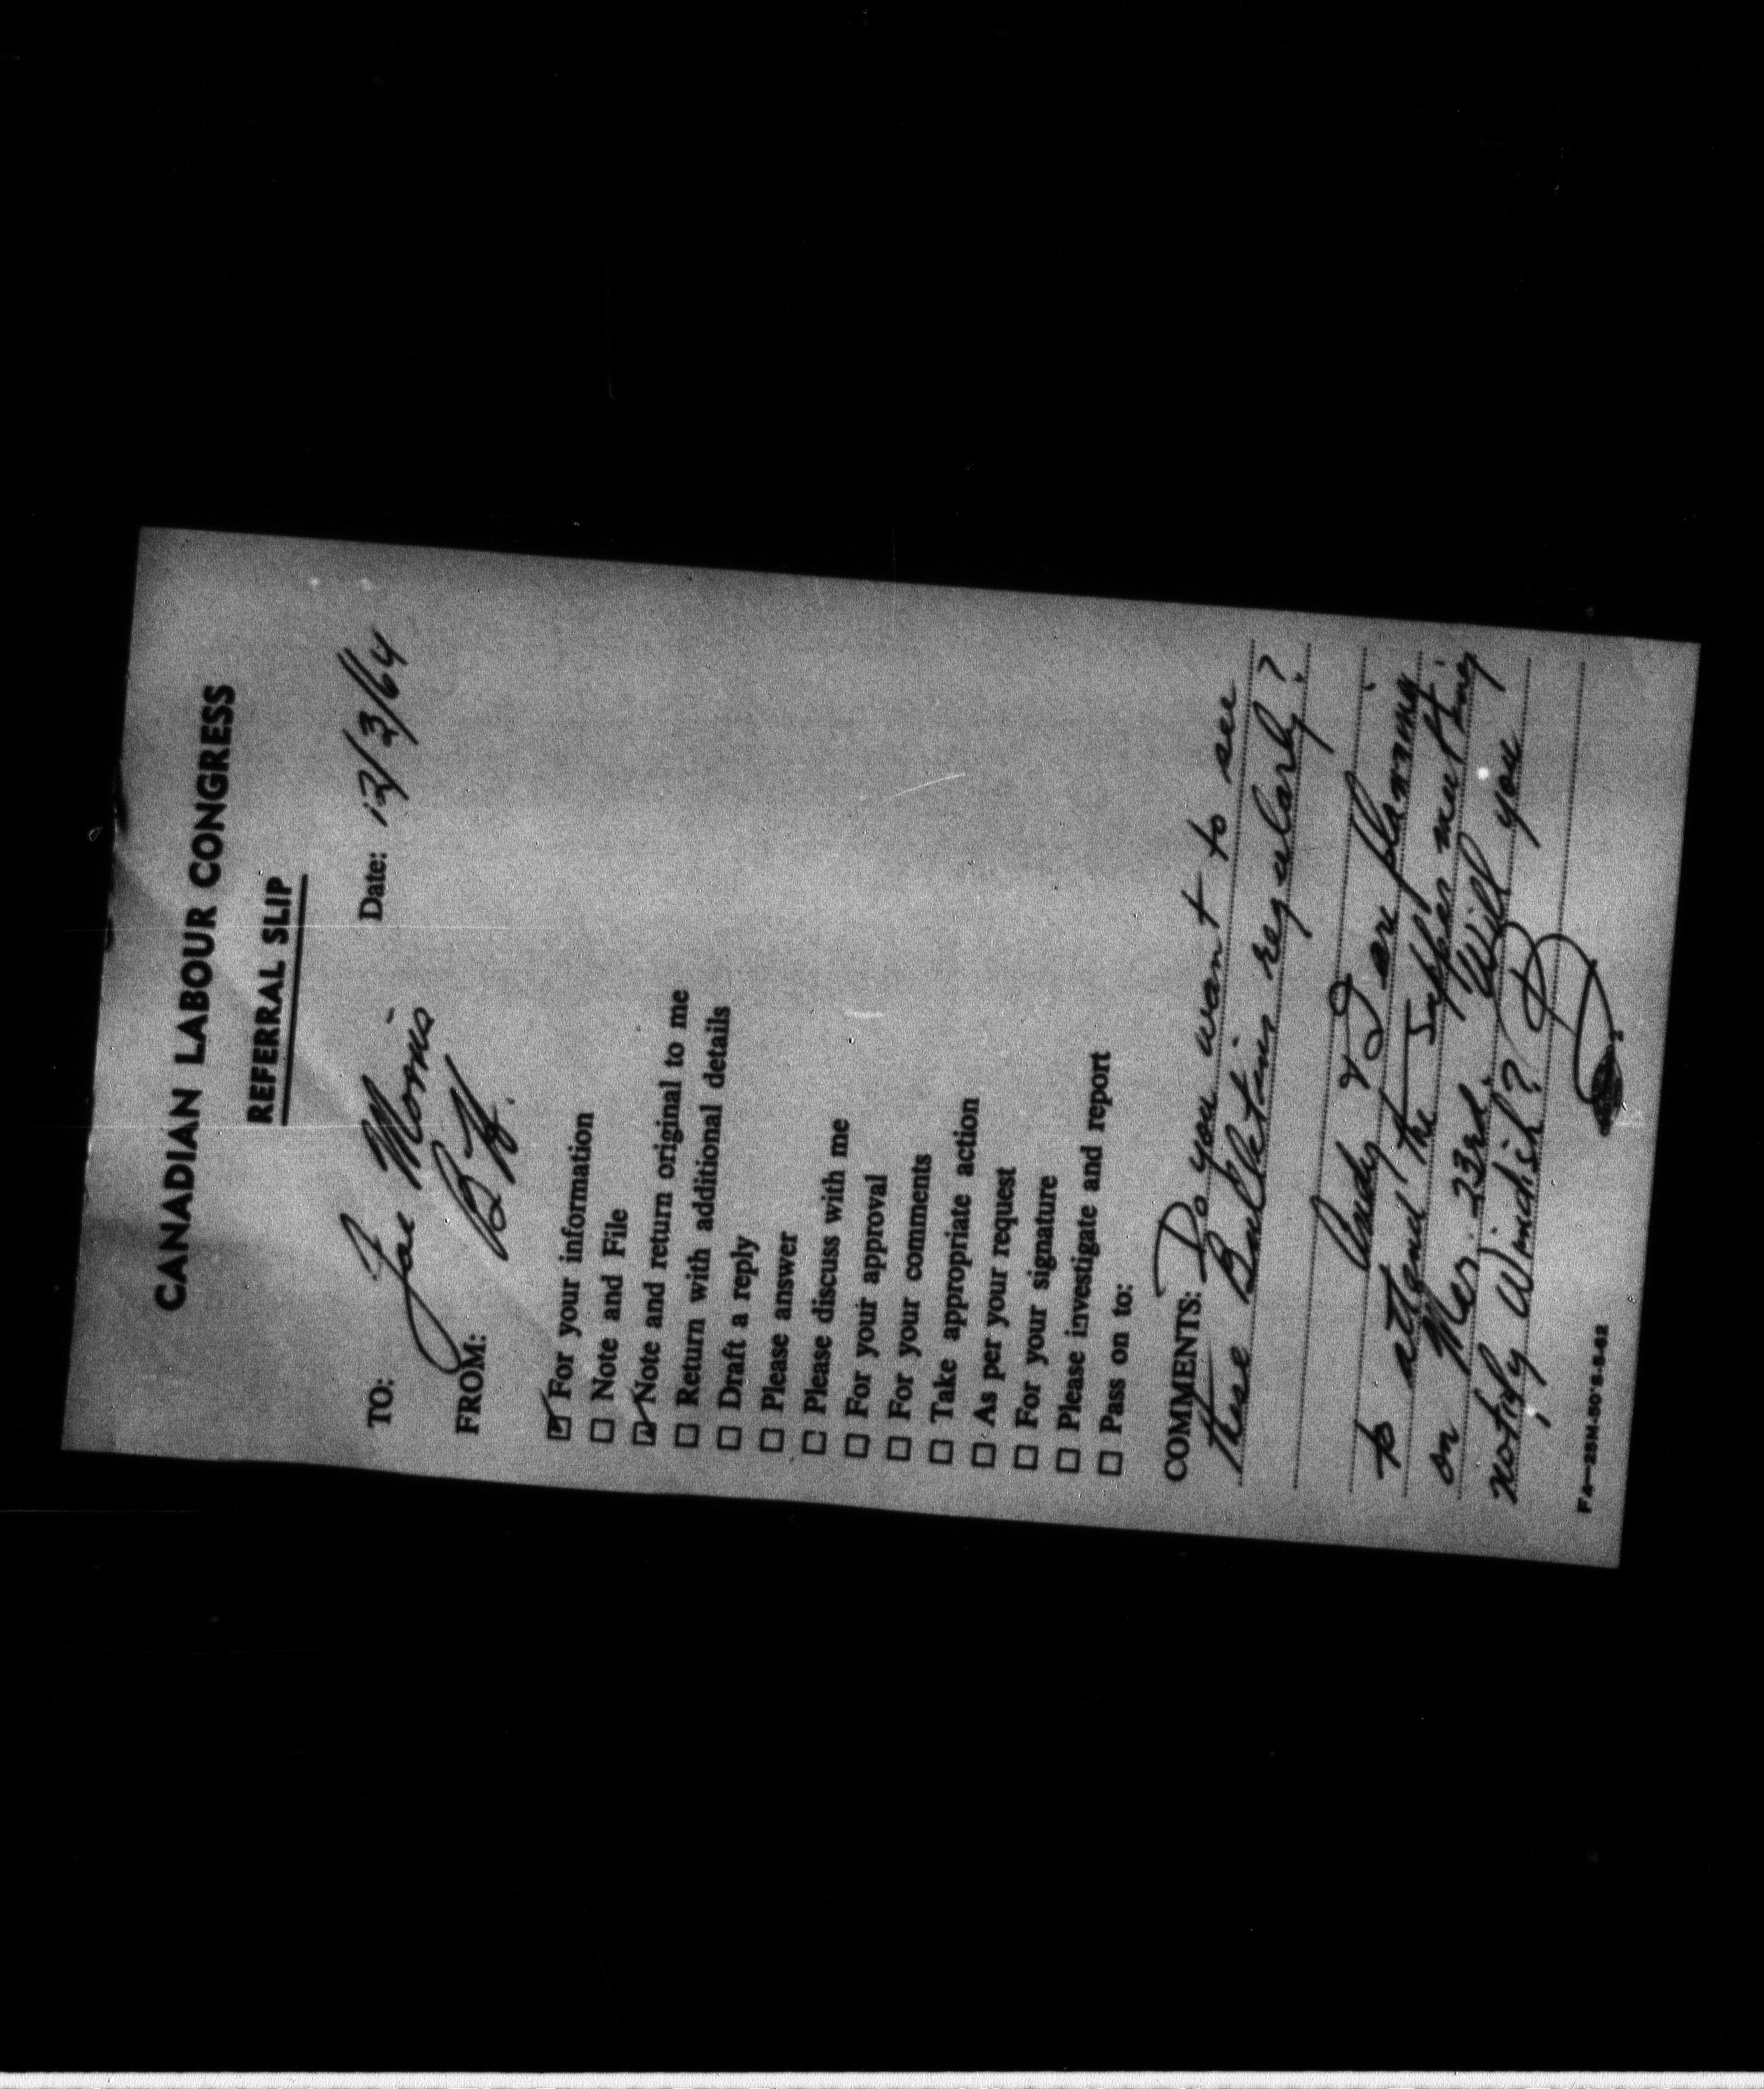 CANADIAN LABOUR CONGRESS
REFERRAL SLIP
TO: Joe Morris Date: 13/3/64
FROM: B H.
☑ For your information
☐ Note and File
☑ Note and return original to me
☐ Return with additional details
☐ Draft a reply
☐ Please answer
☐ Please discuss with me
☐ For your approval
☐ For your comments
☐ Take appropriate action
☐ As per your request
☐ For your signature
☐ Please investigate and report
☐ Pass on to:
COMMENTS: Do you want to see
these Bulletins regularly?
Andy & I are planning
to attend the supper meeting
on Mar. 23rd. Will you
notify Windish?
FA—25M-50's-5-62